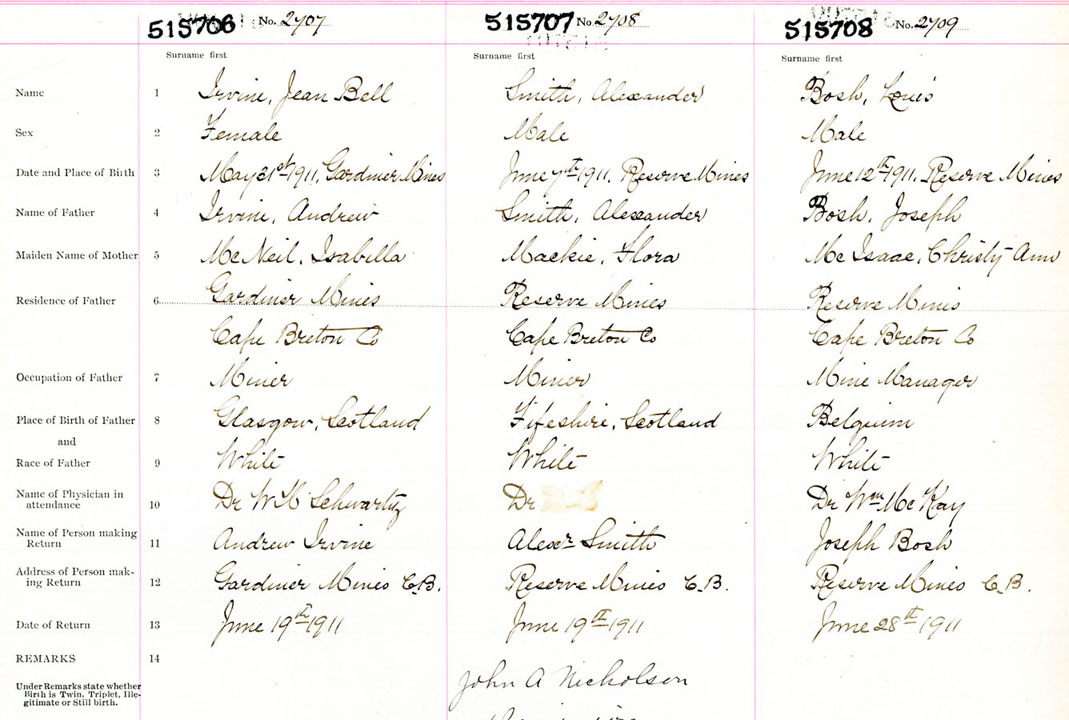 515706 No. 2707 515707 No. 2708 515708 No. 2709
Surname first Surname first Surname first
Name 1 Irvine, Jean Bell Smith, Alexander Bosh, Louis
Sex 2 Female Male Male
Date and Place of Birth 3 May 31st 1911, Gardiner Mines June 7th 1911, Reserve Mines June 12th 1911, Reserve Mines
Name of Father 4 Irvine, Andrew Smith, Alexander Bosh, Joseph
Maiden Name of Mother 5 McNeil, Isabella Mackie, Flora McIsaac, Christy Ann
Residence of Father 6 Gardiner Mines Reserve Mines Reserve Mines
Cape Breton Co Cape Breton Co Cape Breton Co
Occupation of Father 7 Miner Miner Mine Manager
Place of Birth of Father 8 Glasgow, Scotland Fifeshire, Scotland Belgium
and
Race of Father 9 White White White
Name of Physician in
attendance 10 Dr W H Schwartz Dr Dr Wm McKay
Name of Person making
Return 11 Andrew Irvine Alexr Smith Joseph Bosh
Address of Person mak-
ing Return 12 Gardiner Mines C.B. Reserve Mines C.B. Reserve Mines C.B.
Date of Return 13 June 19th 1911 June 19th 1911 June 28th 1911
REMARKS 14
John A Nicholson
Under Remarks state whether
Birth is Twin, Triplet, Ille-
gitimate or Still birth.